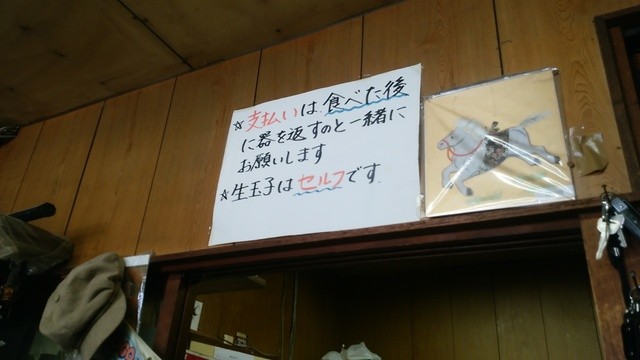 ☆支払いは食べた後
に器を返すのと一緒に
お願いします
☆生玉子はセルフです